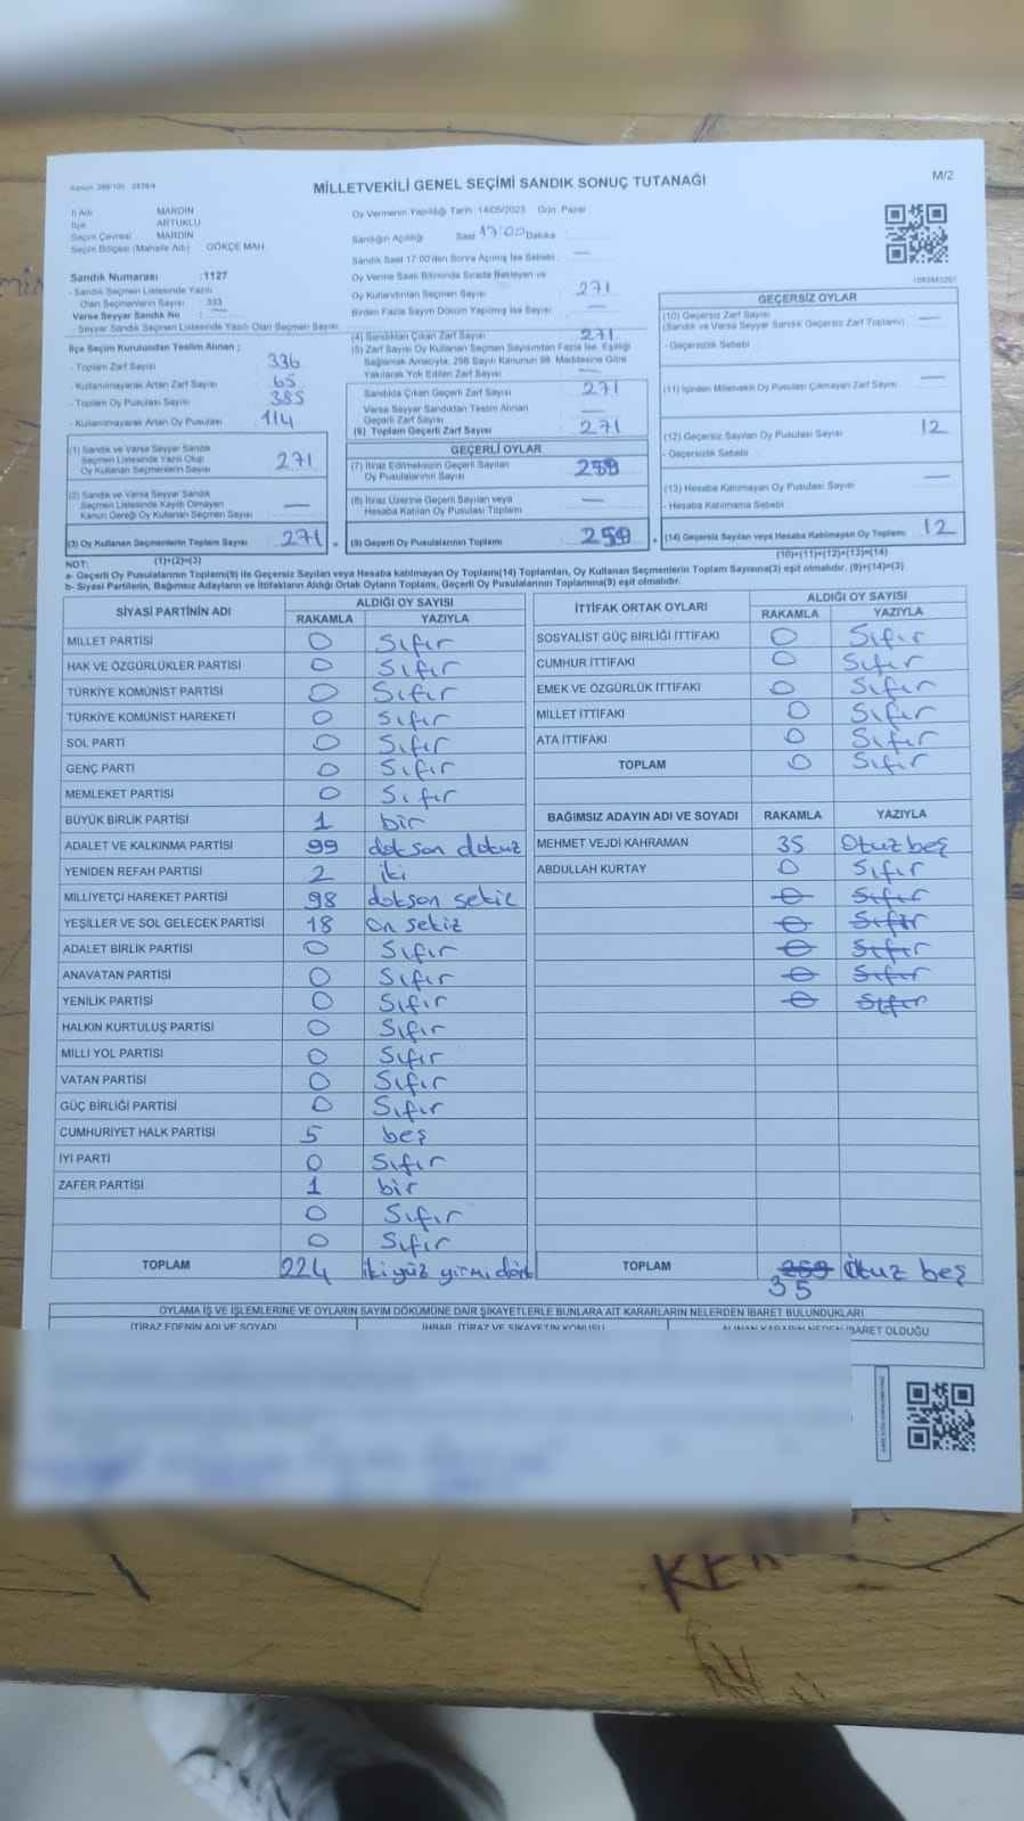 MİLLETVEKİLİ GENEL SEÇİMİ SANDIK SONUÇ TUTANAĞI
M/2
İl Adı MARDİN
İlçe ARTUKLU
Seçim Çevresi MARDİN
Seçim Bölgesi (Mahalle Adı) GÖKÇE MAH.
Sandık Numarası :1127
- Sandık Seçmen Listesinde Yazılı
Olan Seçmenlerin Sayısı 333
Varsa Seyyar Sandık No
- Seyyar Sandık Seçmen Listesinde Yazılı Olan Seçmen Sayısı
İlçe Seçim Kurulundan Teslim Alınan ;
- Toplam Zarf Sayısı 336
- Kullanılmayarak Artan Zarf Sayısı 65
- Toplam Oy Pusulası Sayısı 385
- Kullanılmayarak Artan Oy Pusulası 114
(1) Sandık ve Varsa Seyyar Sandık
Seçmen Listesinde Yazılı Olup
Oy Kullanan Seçmenlerin Sayısı 271
(2) Sandık ve Varsa Seyyar Sandık
Seçmen Listesinde Kayıtlı Olmayan
Kanun Gereği Oy Kullanan Seçmen Sayısı —
(3) Oy Kullanan Seçmenlerin Toplam Sayısı 271
(1)+(2)=(3)
Oy Vermenin Yapıldığı Tarih :14/05/2023 Gün: Pazar
Sandığın Açıldığı Saat 17:00 Dakika
Sandık Saat 17:00'den Sonra Açılmış İse Sebebi —
Oy Verme Saati Bitiminde Sırada Bekleyen ve
Oy Kullandırılan Seçmen Sayısı 271
Birden Fazla Sayım Döküm Yapılmış İse Sayısı —
(4) Sandıktan Çıkan Zarf Sayısı 271
(5) Zarf Sayısı Oy Kullanan Seçmen Sayısından Fazla İse, Eşitliği
Sağlamak Amacıyla, 298 Sayılı Kanunun 98. Maddesine Göre
Yakılarak Yok Edilen Zarf Sayısı —
Sandıkta Çıkan Geçerli Zarf Sayısı 271
Varsa Seyyar Sandıktan Teslim Alınan
Geçerli Zarf Sayısı —
(6) Toplam Geçerli Zarf Sayısı 271
GEÇERLİ OYLAR
(7) İtiraz Edilmeksizin Geçerli Sayılan
Oy Pusulalarının Sayısı 259
(8) İtiraz Üzerine Geçerli Sayılan veya
Hesaba Katılan Oy Pusulası Toplamı —
(9) Geçerli Oy Pusulalarının Toplamı 259
GEÇERSİZ OYLAR
(10) Geçersiz Zarf Sayısı
(Sandık ve Varsa Seyyar Sandık Geçersiz Zarf Toplamı) —
- Geçersizlik Sebebi
(11) İçinden Milletvekili Oy Pusulası Çıkmayan Zarf Sayısı —
(12) Geçersiz Sayılan Oy Pusulası Sayısı 12
- Geçersizlik Sebebi
(13) Hesaba Katılmayan Oy Pusulası Sayısı —
- Hesaba Katılmama Sebebi
(14) Geçersiz Sayılan veya Hesaba Katılmayan Oy Toplamı 12
(10)+(11)+(12)+(13)=(14)
NOT:
a- Geçerli Oy Pusulalarının Toplamı(9) ile Geçersiz Sayılan veya Hesaba katılmayan Oy Toplamı(14) Toplamları, Oy Kullanan Seçmenlerin Toplam Sayısına(3) eşit olmalıdır. (9)+(14)=(3)
b- Siyasi Partilerin, Bağımsız Adayların ve İttifakların Aldığı Ortak Oyların Toplamı, Geçerli Oy Pusulalarının Toplamına(9) eşit olmalıdır.
SİYASİ PARTİNİN ADI ALDIĞI OY SAYISI
RAKAMLA YAZIYLA
MİLLET PARTİSİ 0 Sıfır
HAK VE ÖZGÜRLÜKLER PARTİSİ 0 Sıfır
TÜRKİYE KOMÜNİST PARTİSİ 0 Sıfır
TÜRKİYE KOMÜNİST HAREKETİ 0 Sıfır
SOL PARTİ 0 Sıfır
GENÇ PARTİ 0 Sıfır
MEMLEKET PARTİSİ 0 Sıfır
BÜYÜK BİRLİK PARTİSİ 1 bir
ADALET VE KALKINMA PARTİSİ 99 doksan dokuz
YENİDEN REFAH PARTİSİ 2 iki
MİLLİYETÇİ HAREKET PARTİSİ 98 doksan sekiz
YEŞİLLER VE SOL GELECEK PARTİSİ 18 on sekiz
ADALET BİRLİK PARTİSİ 0 Sıfır
ANAVATAN PARTİSİ 0 Sıfır
YENİLİK PARTİSİ 0 Sıfır
HALKIN KURTULUŞ PARTİSİ 0 Sıfır
MİLLİ YOL PARTİSİ 0 Sıfır
VATAN PARTİSİ 0 Sıfır
GÜÇ BİRLİĞİ PARTİSİ 0 Sıfır
CUMHURİYET HALK PARTİSİ 5 beş
İYİ PARTİ 0 Sıfır
ZAFER PARTİSİ 1 bir
0 Sıfır
0 Sıfır
TOPLAM 224 ikiyüz yirmi dört
İTTİFAK ORTAK OYLARI ALDIĞI OY SAYISI
RAKAMLA YAZIYLA
SOSYALİST GÜÇ BİRLİĞİ İTTİFAKI 0 Sıfır
CUMHUR İTTİFAKI 0 Sıfır
EMEK VE ÖZGÜRLÜK İTTİFAKI 0 Sıfır
MİLLET İTTİFAKI 0 Sıfır
ATA İTTİFAKI 0 Sıfır
TOPLAM 0 Sıfır
BAĞIMSIZ ADAYIN ADI VE SOYADI RAKAMLA YAZIYLA
MEHMET VEJDİ KAHRAMAN 35 Otuz beş
ABDULLAH KURTAY 0 Sıfır
0 Sıfır
0 Sıfır
0 Sıfır
0 Sıfır
0 Sıfır
TOPLAM 259 Otuz beş
35
OYLAMA İŞ VE İŞLEMLERİNE VE OYLARIN SAYIM DÖKÜMÜNE DAİR ŞİKAYETLERLE BUNLARA AİT KARARLARIN NELERDEN İBARET BULUNDUKLARI
İTİRAZ EDENİN ADI VE SOYADI İHBAR, İTİRAZ VE ŞİKAYETİN KONUSU ALINAN KARARIN NEDEN İBARET OLDUĞU